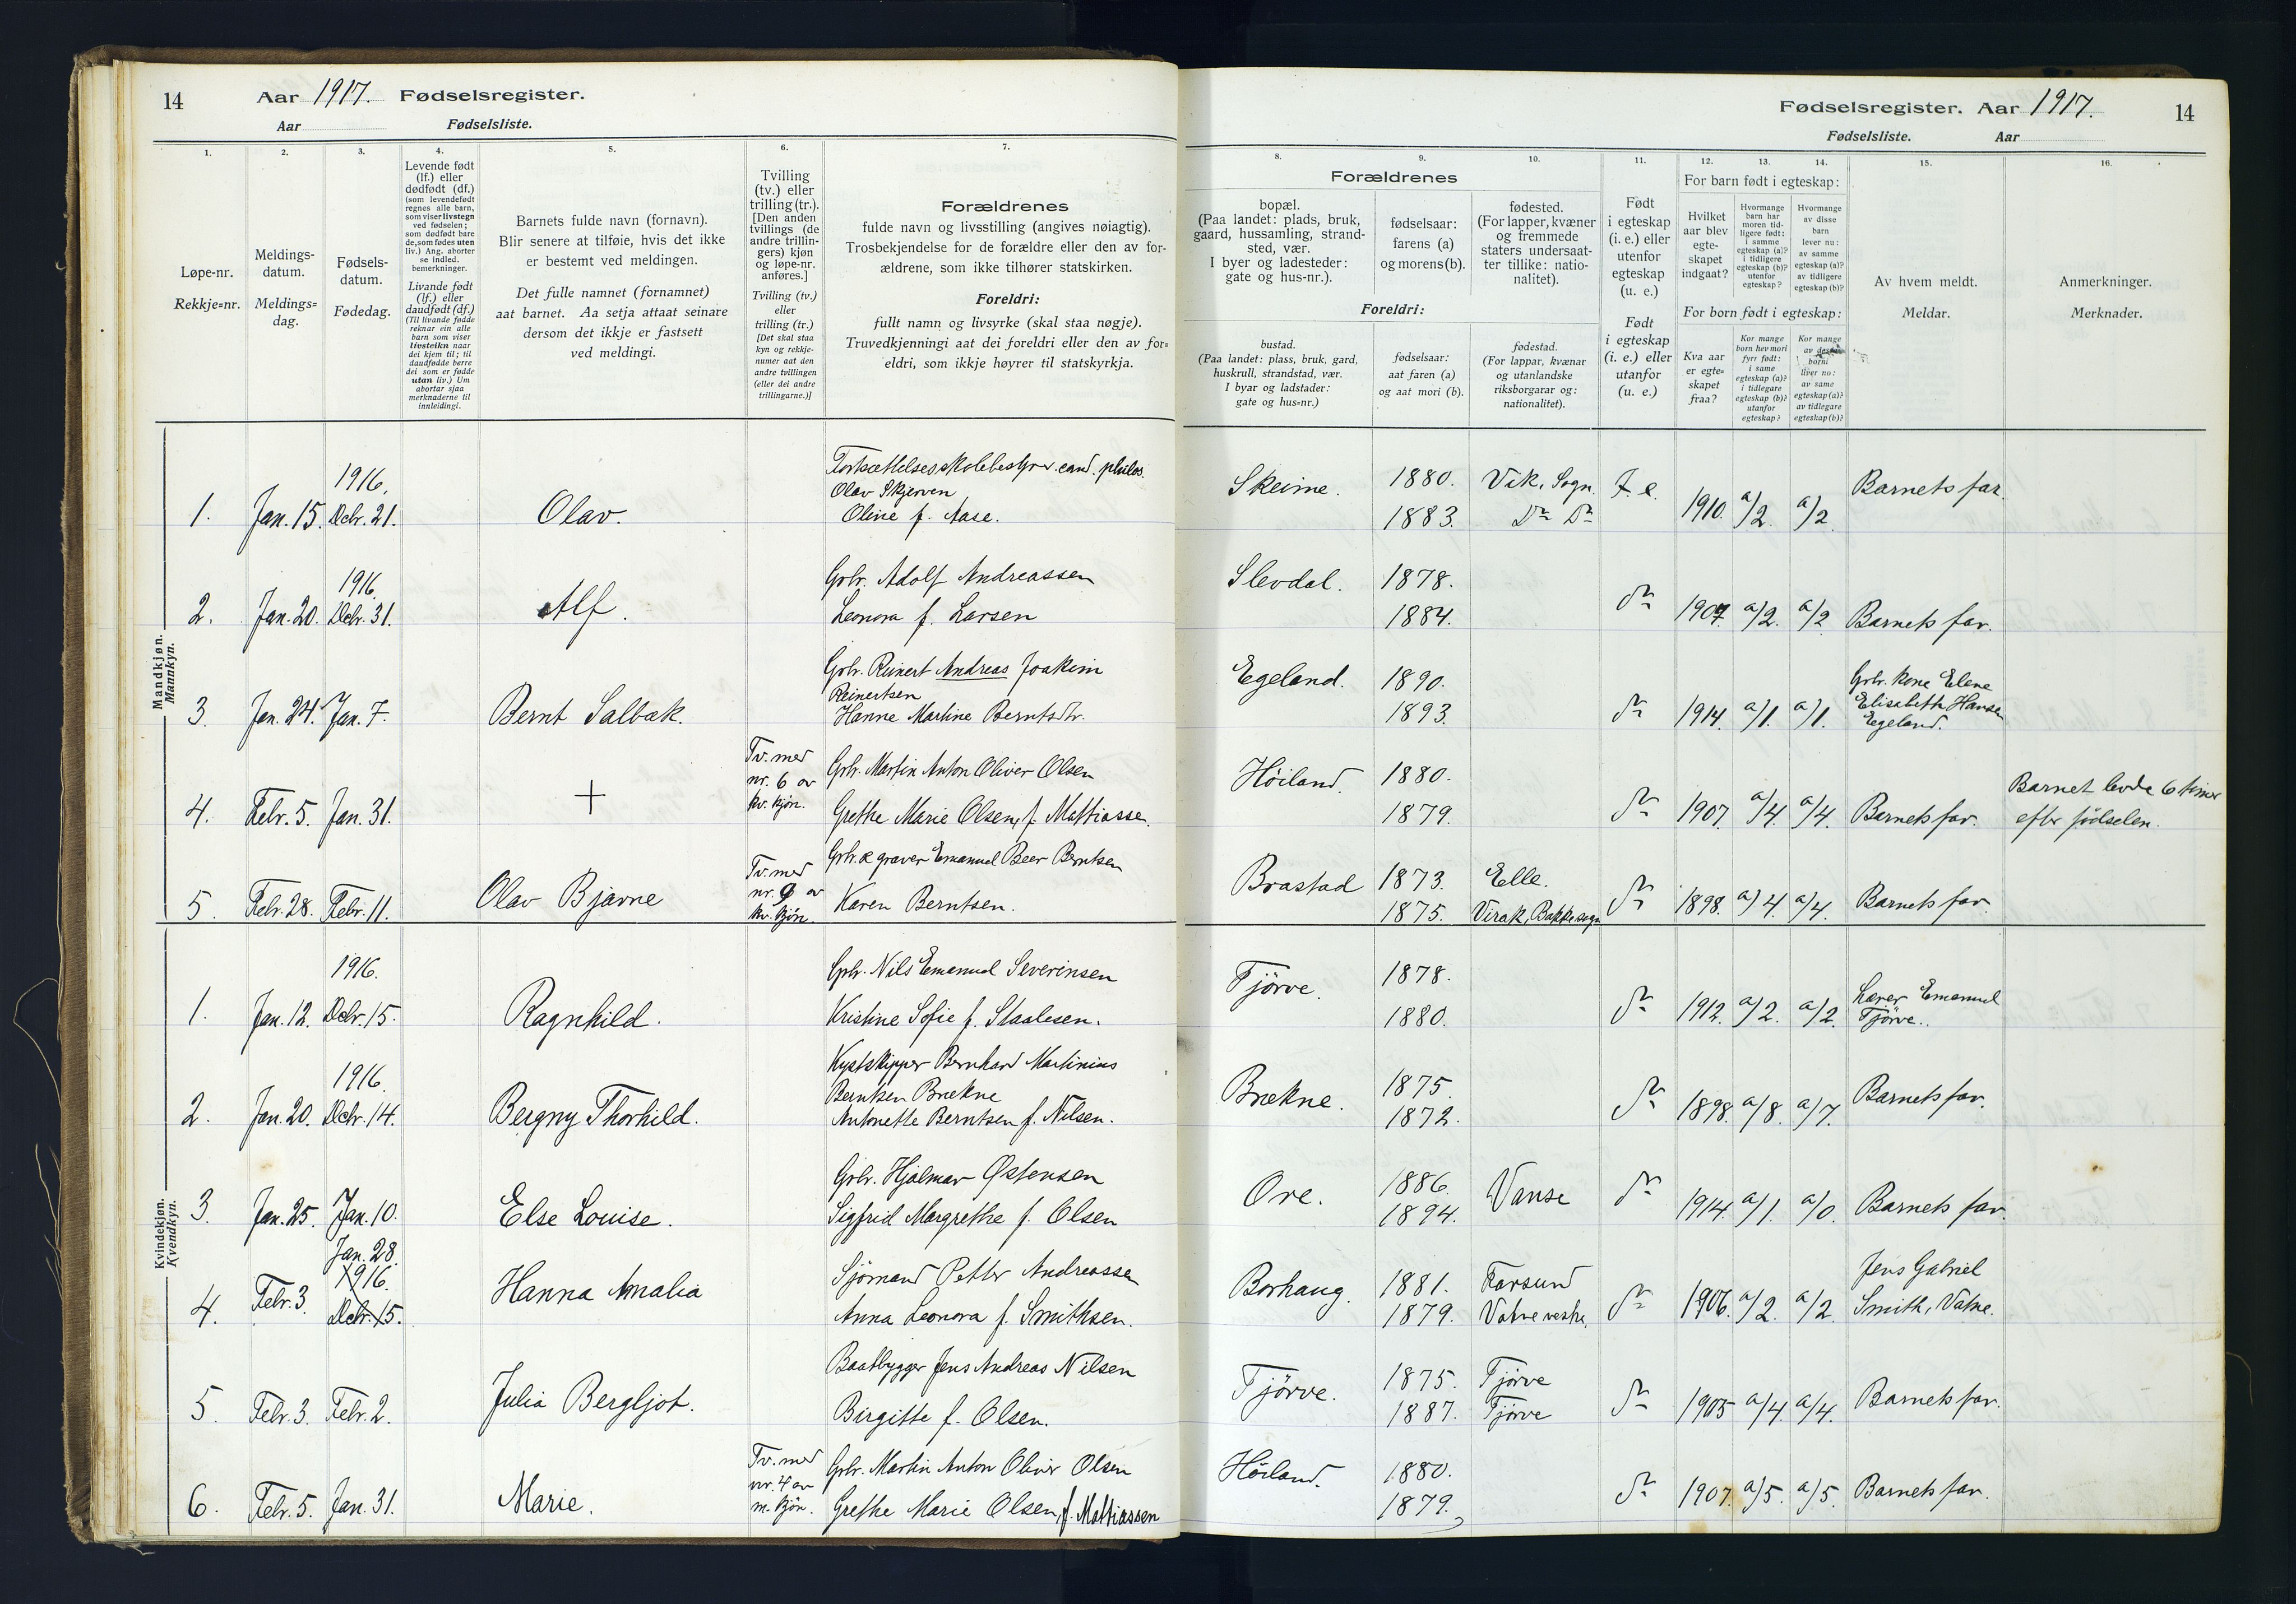 14 Aar 1917. Fødselsregister.
Aar Fødselsliste.
Fødselsregister. Aar 1917. 14
Fødselsliste. Aar
1.
Løpe-nr.
Rekkje=nr.
2.
Meldings-
datum.
Meldings=
dag.
3.
Fødsels-
datum.
Fødedag.
4.
Levende født
(lf.) eller
dødfødt (df.)
(som levendefødt
regnes alle barn,
som viser livstegn
ved fødselen;
som dødfødt bare
de, som fødes uten
liv.) Ang. aborter
se indled.
bemerkninger.
Livande født
(lf.) eller
daudfødt (df.)
(Til livande fødde
reknar ein alle
barn som viser
livsteikn naar
dei kjem til; til
daudfødde berre
dei som er fødde
utan liv.) Um
abortar sjaa
merknaderne til
innleidingi.
5.
Barnets fulde navn (fornavn).
Blir senere at tilføie, hvis det ikke
er bestemt ved meldingen.
Det fulle namnet (fornamnet)
aat barnet. Aa setja attaat seinare
dersom det ikkje er fastsett
ved meldingi.
6.
Tvilling
(tv.) eller
trilling (tr.).
[Den anden
tvillings (de
andre trillin-
gers) kjøn
og løpe-nr.
anføres.]
Tvilling (tv.)
eller
trilling (tr.)
[Det skal staa
kyn og rekkje-
numer aat den
andre tvillingen
(eller dei andre
trillingarne.)]
7.
Forældrenes
fulde navn og livsstilling (angives nøiagtig).
Trosbekjendelse for de forældre eller den av for-
ældrene, som ikke tilhører statskirken.
Foreldri:
fullt namn og livsyrke (skal staa nøgje).
Truvedkjenningi aat dei foreldri eller den av for=
eldri, som ikkje høyrer til statskyrkja.
8.
Forældrenes
bopæl.
(Paa landet: plads, bruk,
gaard, hussamling, strand-
sted, vær.
I byer og ladesteder:
gate og hus-nr.).
Foreldri:
bustad.
(Paa landet: plass, bruk, gard,
huskrull, strandstad, vær.
I byar og ladstader:
gate og hus=nr.)
9.
fødselsaar:
farens (a)
og morens (b).
fødselsaar:
aat faren (a)
og aat mori (b).
10.
fødested.
(For lapper, kvæner
og fremmede
staters undersaat-
ter tillike: natio-
nalitet).
fødestad.
(For lappar, kvænar
og utanlandske
riksborgarar og:
nationalitet).
11.
Født
i egteskap
(i. e.) eller
utenfor
egteskap
(u. e.)
Født
i egteskap
(i. e.) eller
utanfor
(u. e.)
For barn født i egteskap:
12.
Hvilket
aar blev
egte-
skapet
indgaat?
13.
Hvormange
barn har
moren tid-
ligere født:
i samme
egteskap (a)?
i tidligere
egteskap (b)?
utenfor
egteskap?
14.
Hvormange
av disse
barn
lever nu:
av samme
egteskap (a)?
av tidligere
egteskap (b)?
For born født i egteskap:
Kva aar
er egte=
skapet
fraa?
Kor mange
born hev mori
fyrr født:
i same
egteskap (a)?
i tidlegare
egteskap (b)?
utanfor
egteskap?
Kor mange
av
borni
liver no:
av same
egteskap (a)?
av tidlegare
egteskap (b)?
15.
Av hvem meldt.
Meldar.
16.
Anmerkninger.
Merknader.
Mandkjøn.
Mannkyn.
1. Jan. 15. 1916. Debr. 21. Olav. Fortsættelsesskolebestyrer cand. philos.
Olav Skjerven
Oline f. Aase.
Skeime. 1880. 1883. Vik, Sogn. Do Do I. e. 1910. a/2. a/2. Barnets far.
2. Jan. 20. 1916. Debr. 31. Alf. Grbr. Adolf Andreassen
Leonora f. Larsen
Slevdal. 1878. 1884. do 1907. a/2. a/2. Barnets far.
3. Jan. 24. Jan. 7. Bernt Salbæk. Grbr. Reinert Andreas Joakim
Reinertsen
Hanne Martine Berntsdtr.
Egeland. 1890. 1893. do 1914. a/1. a/1. Grbr. kone Elene
Elisabeth Hansen
Egeland.
4. Febr. 5. Jan. 31. + Tv. med
nr. 6 av
kv. kjøn.
Grbr. Martin Anton Oliver Olsen
Grethe Marie Olsen, f. Mattiasse.
Høiland. 1880. 1879. do 1907. a/4. a/4. Barnets far. Barnet levde 6 timer
efter fødselen.
5. Febr. 28. Febr. 11. Olav Bjarne Tv. med
nr. 9 av
kv. kjøn.
Grbr. & graver Emanuel Beer Berntsen
Karen Berntsen.
Brastad 1873. 1875. Elle. Virak, Bakke sogn do 1898. a/4. a/4. Barnets far.
Kvindekjøn.
Kvendkyn.
1. Jan. 12. 1916. Debr. 15. Ragnhild. Grbr. Nils Emanuel Severinsen
Kristine Sofie f. Staalesen.
Tjörve. 1878. 1880. do 1912. a/2. a/2. Lærer Emanuel
Tjörve.
2. Jan. 20. 1916. Debr. 14. Bergny Thorhild. Kystskipper Bernhard Martinius
Berntsen Brekne
Antonette Berntsen f. Nilsen.
Brekne. 1875. 1872. do 1898. a/8. a/7. Barnets far.
3. Jan. 25. Jan. 10. Else Louise. Grbr. Hjalmar Østensen
Sigfrid Margrethe f. Olsen
Ore. 1886. 1894. Vanse do 1914. a/1. a/0. Barnets far.
4. Febr. 3. Jan. 28. 1916. Debr. 15. Hanna Amalia Sjömand Petter Andreassen
Anna Leonora f. Smithsen.
Borhaug. 1881. 1879. Farsund Vatne vestre. do 1906. a/2. a/2. Jens Gabriel
Smith, Vatne.
5. Febr. 3. Febr. 2. Julia Bergljot. Baatbygger Jens Andreas Nilsen
Birgitte f. Olsen.
Tjörve. 1875. 1887. Tjörve Tjörve do 1905 a/4. a/4. Barnets far.
6. Febr. 5. Jan. 31. Marie. Tv. med
nr. 4 av
m. kjøn.
Grbr. Martin Anton Oliver Olsen
Grethe Marie Olsen, f. Mattiassen
Høiland. 1880. 1879. do 1907. a/5. a/5. Barnets far.